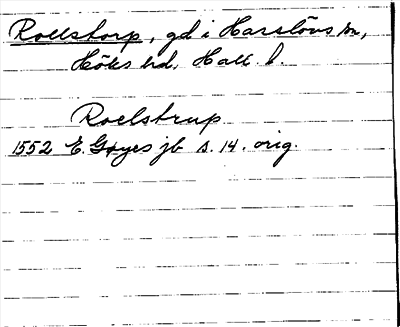 Roelstorp, gd i Harslövs sn,
Höks hd. Hall. l.
Roelstrup
1552 E. Gøyes jb s. 14. orig.